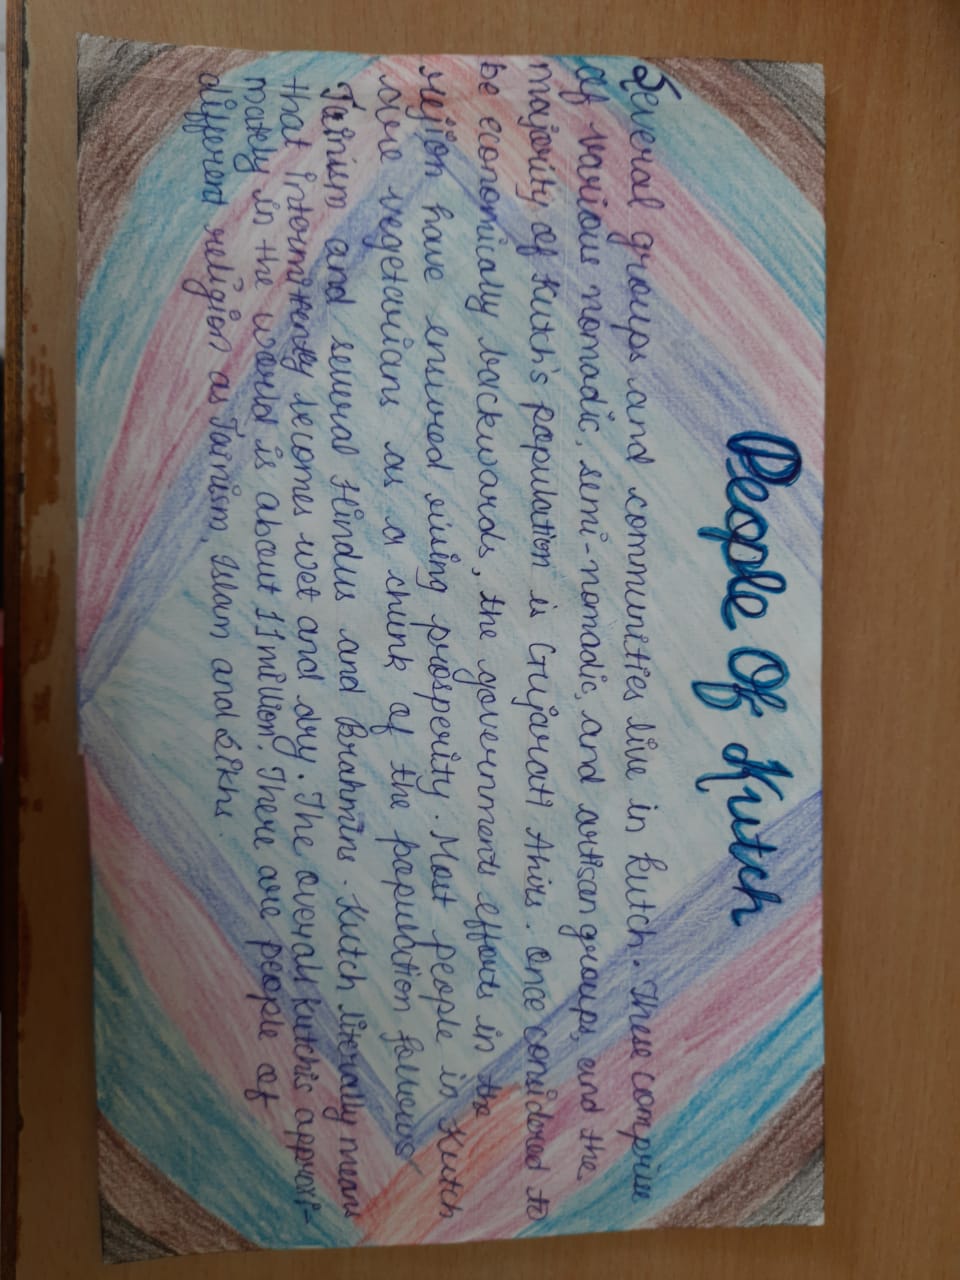 People Of Kutch
Several groups and communities live in kutch. These comprise
of various nomadic, semi-nomadic, and artisan groups, and the
majority of Kutch's population is Gujarati Ahirs. Once considered to
be economically backwards, the governments efforts in the
region have ensured rising prosperity. Most people in Kutch
were vegetarians as a chunk of the population follows
Jainism and several Hindus and Brahmins. Kutch literally means
that intermigently becomes wet and dry. The overall kutchis approxi-
mately in the world is about 11million. There are people of
different religion as Jainism, Islam and Sikhs.